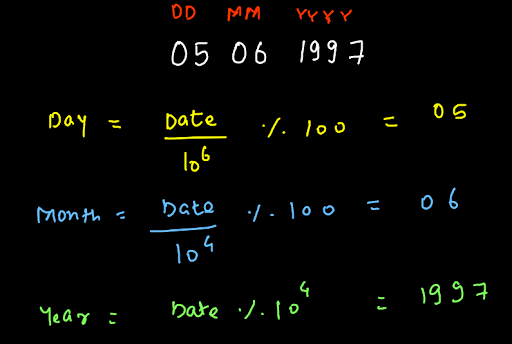 DD MM YYYY
05 06 1997
Day = Date / 10^6 % 100 = 05
Month = Date / 10^4 % 100 = 06
Year = Date % 10^4 = 1997